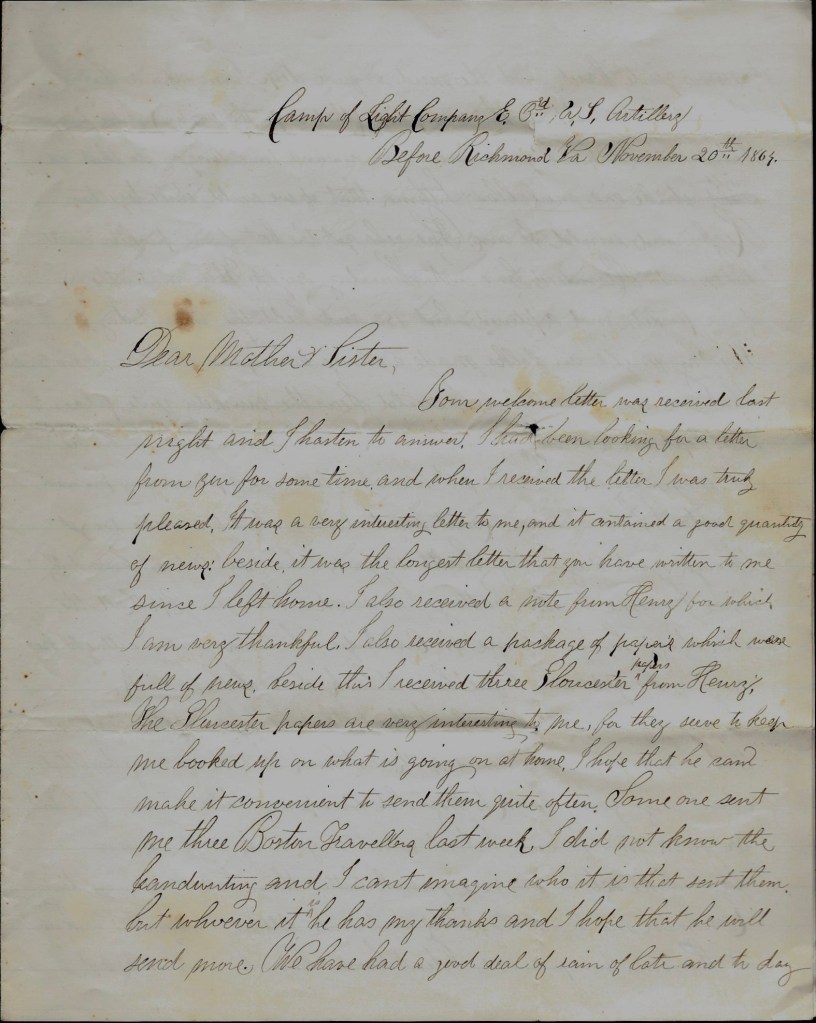 Camp of Light Company E. 3rd U. S. Artillery
Before Richmond Va November 20th 1864.
Dear Mother & Sister,
Your welcome letter was received last
night and I hasten to answer. I had been looking for a letter
from you for some time, and when I received the letter I was truly
pleased, It was a very interesting letter to me, and it contained a good quantity
of news: beside, it was the longest letter that you have written to me
since I left home. I also received a note from Henry for which
I am very thankful. I also received a package of papers which were
full of news, beside this I received three Gloucester papers from Henry,
The Gloucester papers are very interesting to me, for they serve to keep
me booked up on what is going on at home, I hope that he can
make it convenient to send them quite often. Some one sent
me three Boston Travellers last week, I did not know the
handwriting and I cant imagine who it is that sent them.
but whoever it is he has my thanks and I hope that he will
send more. We have had a good deal of rain of late and to day